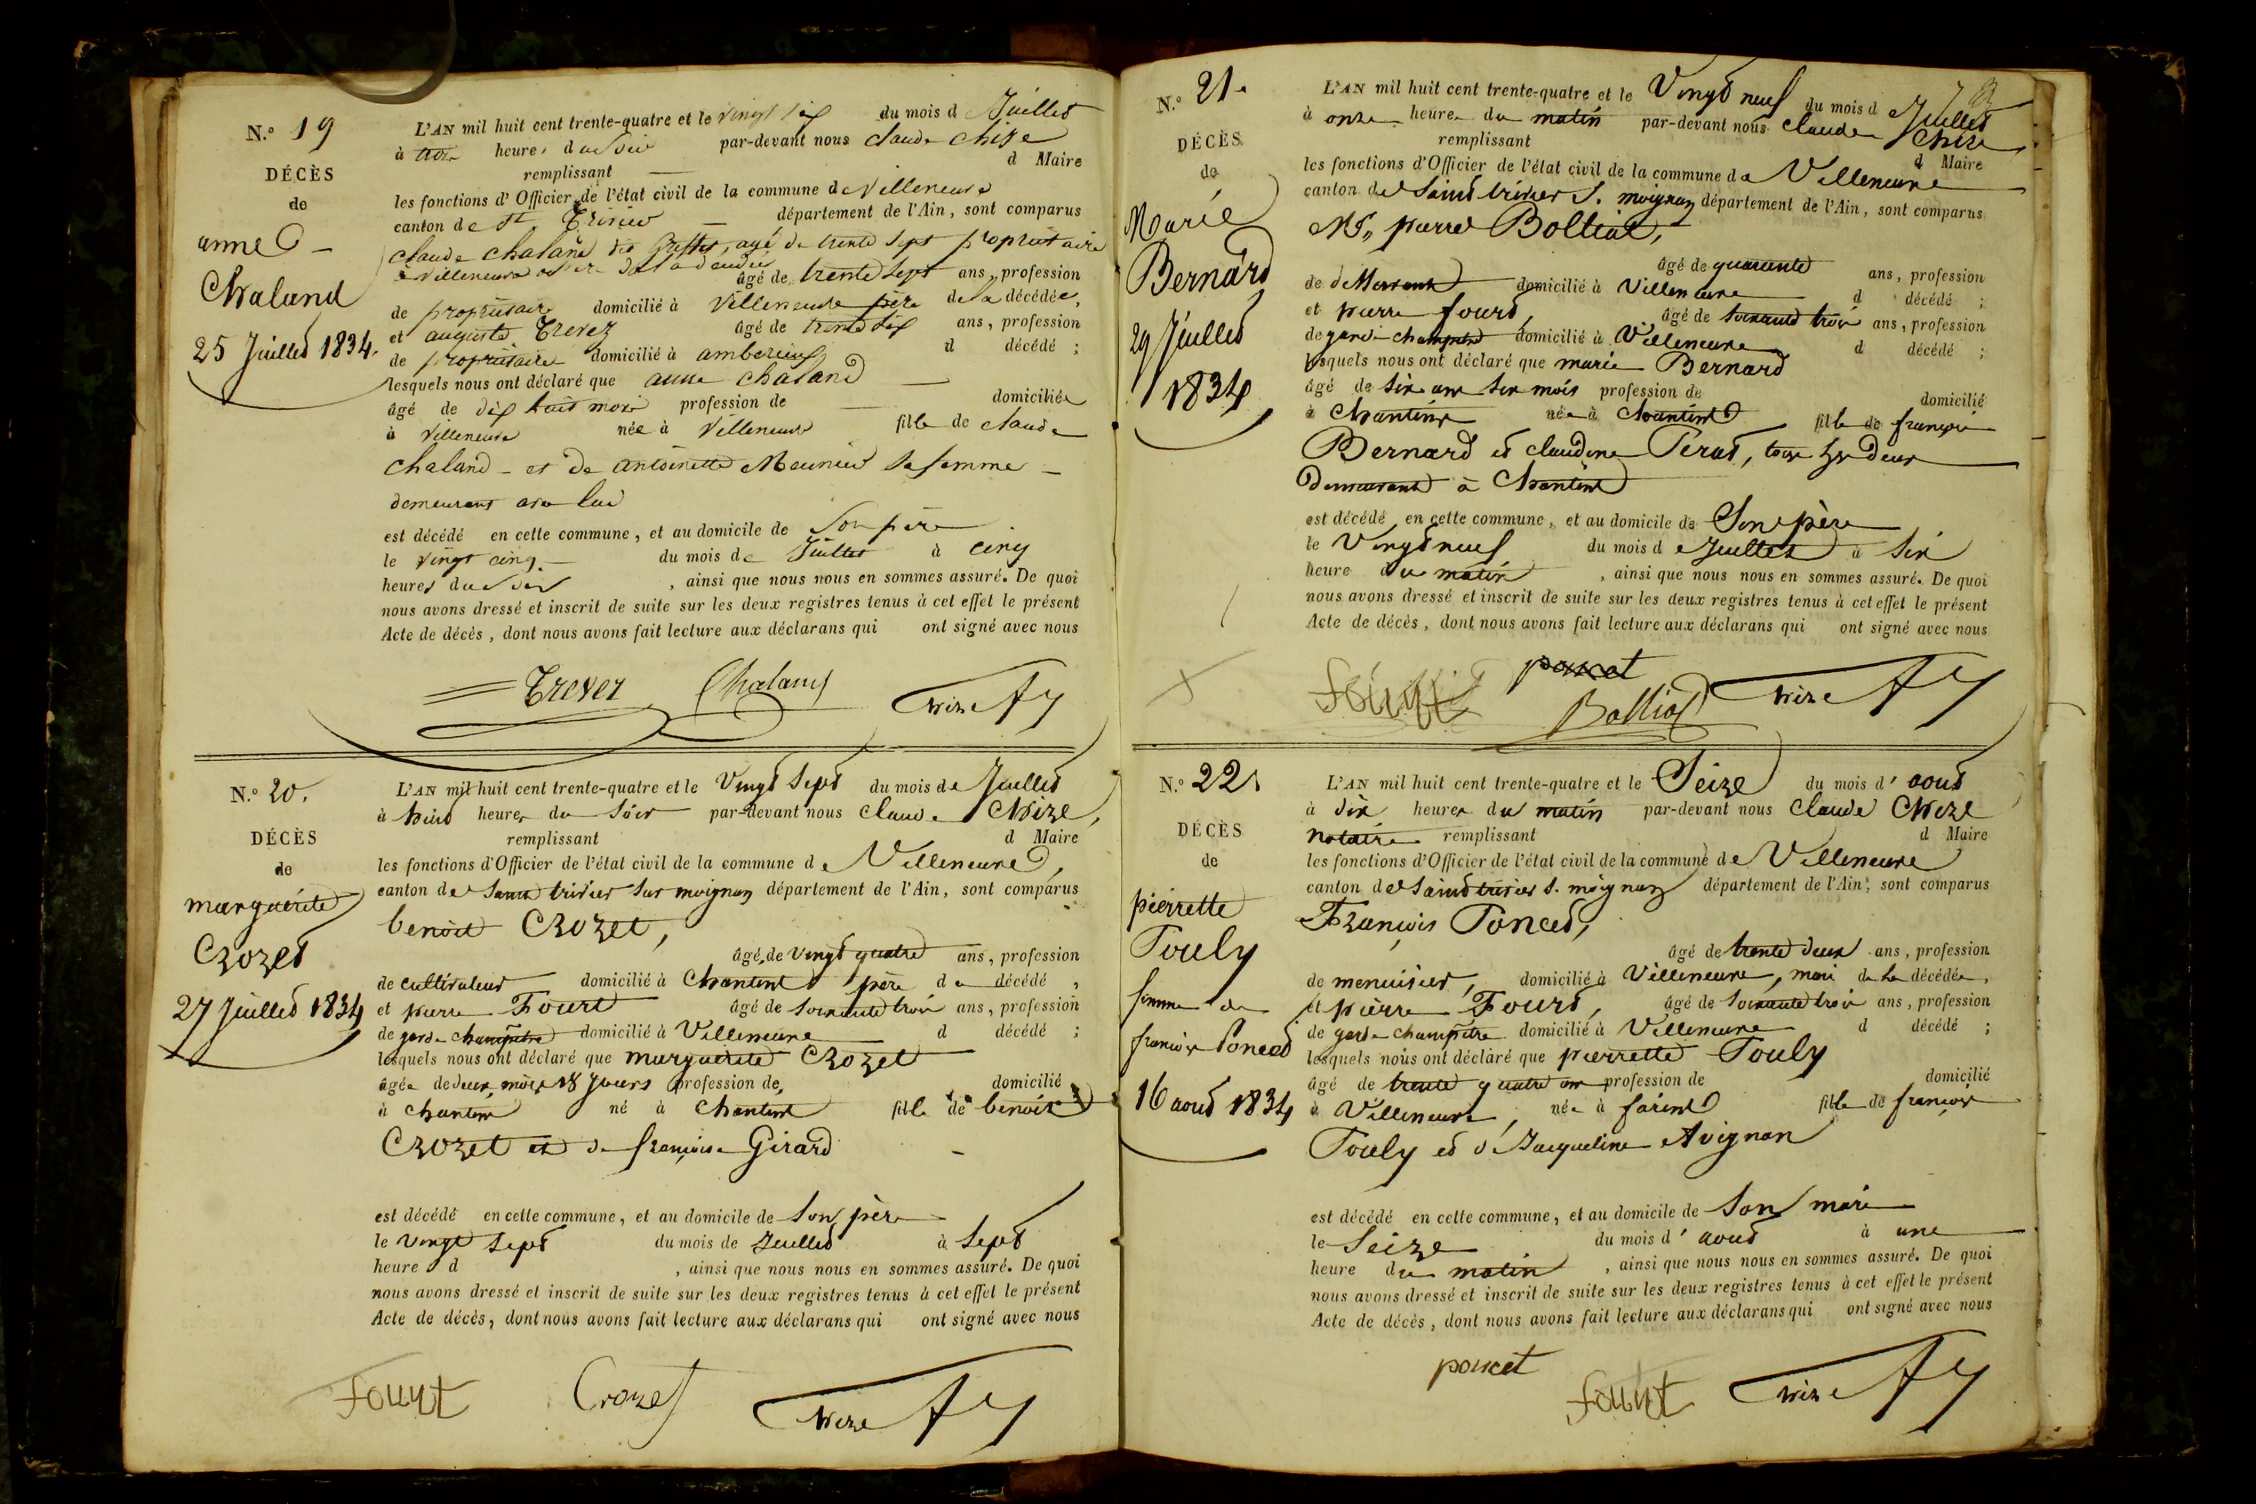 N.o 19
DÉCÈS
de
anne
Chaland
25 Juillet 1834.
L'AN mil huit cent trente-quatre et le vingt six du mois d Juillet
à trois heures du soir par-devant nous claude chize
remplissant d Maire
les fonctions d'Officier de l'état civil de la commune de villeneuve
canton de st Trivier département de l'Ain, sont comparus
claude chaland agé de trente sept propriétaire
à villeneuve
âgé de trente sept ans, profession
de propriétaire domicilié à villeneuve père de la décédée,
et auguste Trever âgé de trente six ans, profession
de propriétaire domicilié à amberieux d décédé ;
lesquels nous ont déclaré que anne chaland
âgé de dix huit mois profession de domiciliée
à villeneuve née à villeneuve fille de claude
chaland et de antoinette Meunier sa femme
demeurant avec lui
est décédé en cette commune, et au domicile de son père
le vingt cinq du mois de Juillet à cinq
heures du soir , ainsi que nous nous en sommes assuré. De quoi
nous avons dressé et inscrit de suite sur les deux registres tenus à cet effet le présent
Acte de décès, dont nous avons fait lecture aux déclarans qui ont signé avec nous
Trever Chaland Chize
N.o 20.
DÉCÈS
de
marguerite
Crozet
27 Juillet 1834
L'AN mil huit cent trente-quatre et le Vingt Sept du mois de Juillet
à huit heures du Soir par-devant nous Claude Chize,
remplissant d Maire
les fonctions d'Officier de l'état civil de la commune de Villeneuve,
canton de Saint trivier sur moignan département de l'Ain, sont comparus
benoit Crozet,
âgé de vingt quatre ans, profession
de cultivateur domicilié à Chanteint père de décédé ,
et pierre Fourt âgé de soixante trois ans, profession
de garde champêtre domicilié à Villeneuve d décédé ;
lesquels nous ont déclaré que marguerite Crozet
âgée de deux mois 18 jours profession de domicilié
à chanteint né à chanteint fille de benoit
Crozet et de françoise Girard
est décédé en cette commune, et au domicile de Son père
le vingt sept du mois de Juillet à Sept
heure d , ainsi que nous nous en sommes assuré. De quoi
nous avons dressé et inscrit de suite sur les deux registres tenus à cet effet le présent
Acte de décès, dont nous avons fait lecture aux déclarans qui ont signé avec nous
fourt Crozet Chize
N.o 21.
DÉCÈS
de
Marie
Bernard
29 Juillet
1834
L'AN mil huit cent trente-quatre et le Vingt neuf du mois d Juillet
à onze heure du matin par-devant nous claude Chize
remplissant d Maire
les fonctions d'Officier de l'état civil de la commune de Villeneuve
canton de Saint trivier S. moignan département de l'Ain, sont comparus
Mr. pierre Bolliat,
âgé de quarante ans, profession
de domicilié à Villeneuve d décédé ;
et pierre fourt, âgé de soixante trois ans, profession
de garde champêtre domicilié à Villeneuve d décédé ;
lesquels nous ont déclaré que marie Bernard
âgé de six ans six mois profession de domicilié
à Chanteint née à Chanteint fille de françois
Bernard et claudine Perat, tous les deux
Demeurant à Chanteint
est décédé en cette commune, et au domicile de Son père
le Vingt neuf du mois de Juillet à six
heure du matin , ainsi que nous nous en sommes assuré. De quoi
nous avons dressé et inscrit de suite sur les deux registres tenus à cet effet le présent
Acte de décès, dont nous avons fait lecture aux déclarans qui ont signé avec nous
poncet
fourt Bolliat Chize
N.o 22
DÉCÈS
de
pierrette
Pouly
femme de
françois Poncet
16 aout 1834
L'AN mil huit cent trente-quatre et le Seize du mois d' aout
à dix heures du matin par-devant nous Claude Chize
notaire remplissant d Maire
les fonctions d'Officier de l'état civil de la commune de Villeneuve
canton de Saint trivier S. moignan département de l'Ain, sont comparus
François Poncet,
âgé de trente deux ans, profession
de menuisier, domicilié à Villeneuve, mari de la décédée,
et pierre Fourt, âgé de soixante trois ans, profession
de garde champêtre domicilié à Villeneuve d décédé ;
lesquels nous ont déclaré que pierrette Pouly
âgé de trente quatre ans profession de domicilié
à Villeneuve, née à fareins fille de françois
Pouly et d'Jacqueline Avignon
est décédé en cette commune, et au domicile de Son mari
le Seize du mois d' aout à une
heure du matin , ainsi que nous nous en sommes assuré. De quoi
nous avons dressé et inscrit de suite sur les deux registres tenus à cet effet le présent
Acte de décès, dont nous avons fait lecture aux déclarans qui ont signé avec nous
poncet fourt Chize